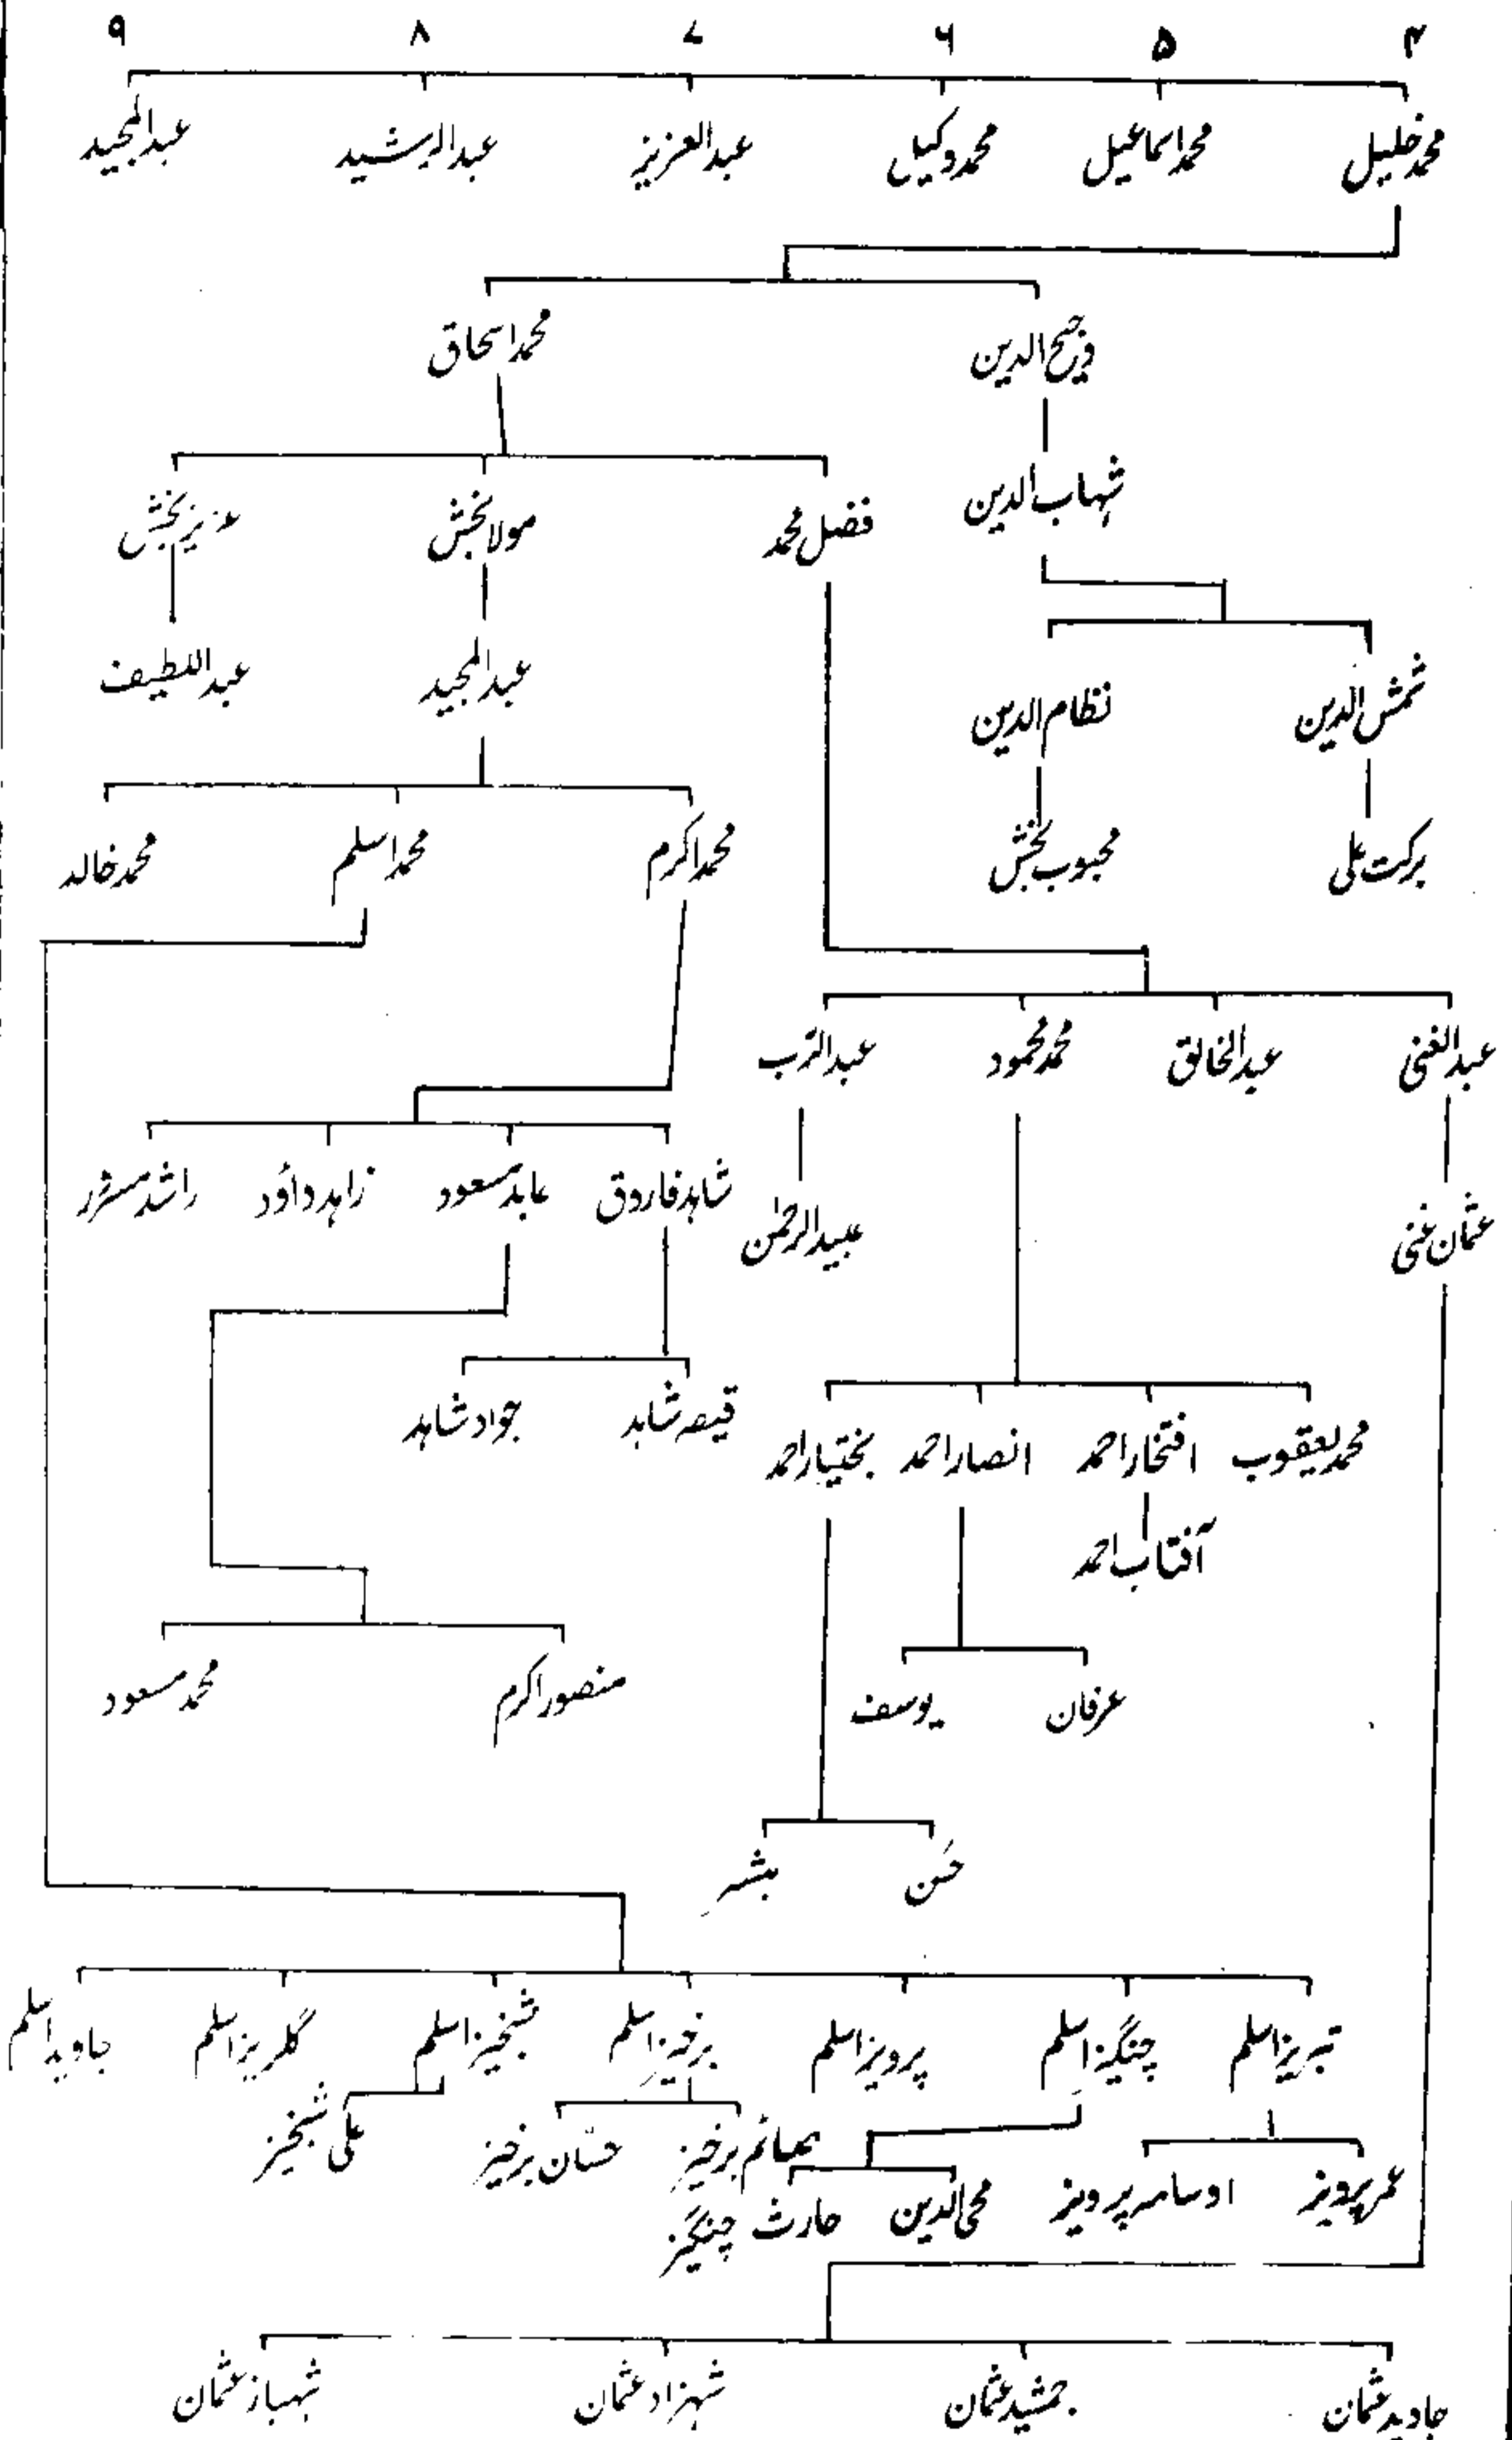 ۴ ۵ ۶ ۷ ۸ ۹
محمد خلیل محمد اسماعیل محمد وکیل عبدالعزیز عبدالرشید عبدالمجید
ذبیح الدین محمد اسحاق
شہاب الدین فضل محمد مولا بخش عزیز بخش
شمش الدین نظام الدین عبدالمجید عبداللطیف
برکت علی محبوب بخش محمد اکرم محمد اسلم محمد خالد
عبدالغنی عبدالخالق محمد محمود عبدالرب
شاہد فاروق عابد مسعود زاہد داؤد راشد
عثمان غنی عبیدالرحمٰن
قیصر شاہد جواد شاہد
محمد یعقوب افتخار احمد انصار احمد بختیار احمد
آفتاب احمد
عرفان یوسف منصور اکرم محمد مسعود
حسن مبشر
تبریز اسلم چنگیز اسلم پرویز اسلم برخیز اسلم شبخیز اسلم گلریز اسلم جاوید اسلم
برخیز حسان برخیز علی شبخیز
عمر پرویز اوسامہ پرویز محی الدین حارث چنگیز
جاوید عثمان جمشید عثمان شہزاد عثمان شہباز عثمان